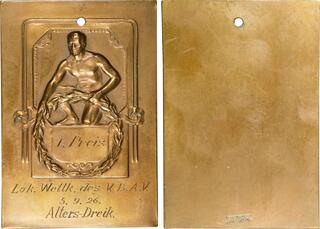 1. Preis
Lok. Wettk. des V. B. A. V.
5. 9. 26.
Alters-Dreik.